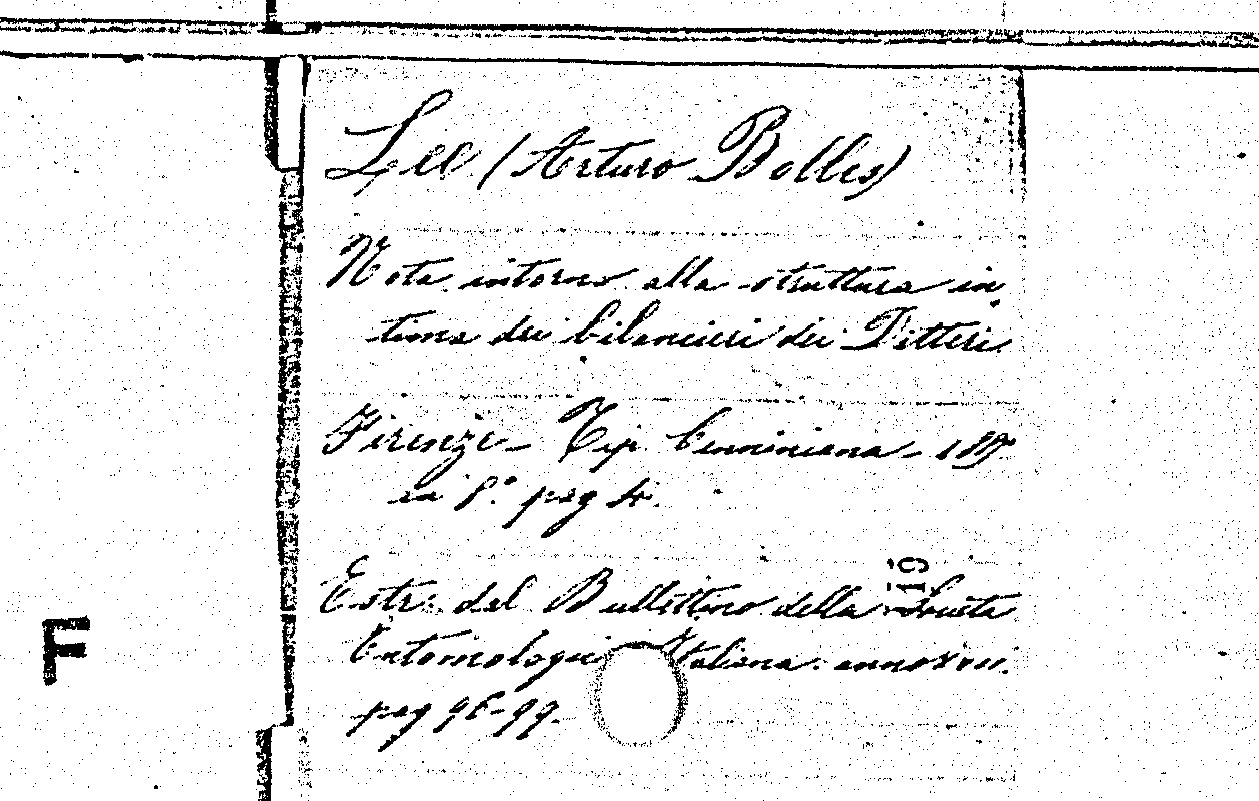 Lee (Arturo Bolles)
Nota intorno alla struttura in-
tima dei bilancieri dei Ditteri.
Firenze - Tip. Cenniniana -
in 8.° pag 4.
Estr. dal Bullettino della Società
Entomologica Italiana. anno XVII.
pag 96-99.
19
F